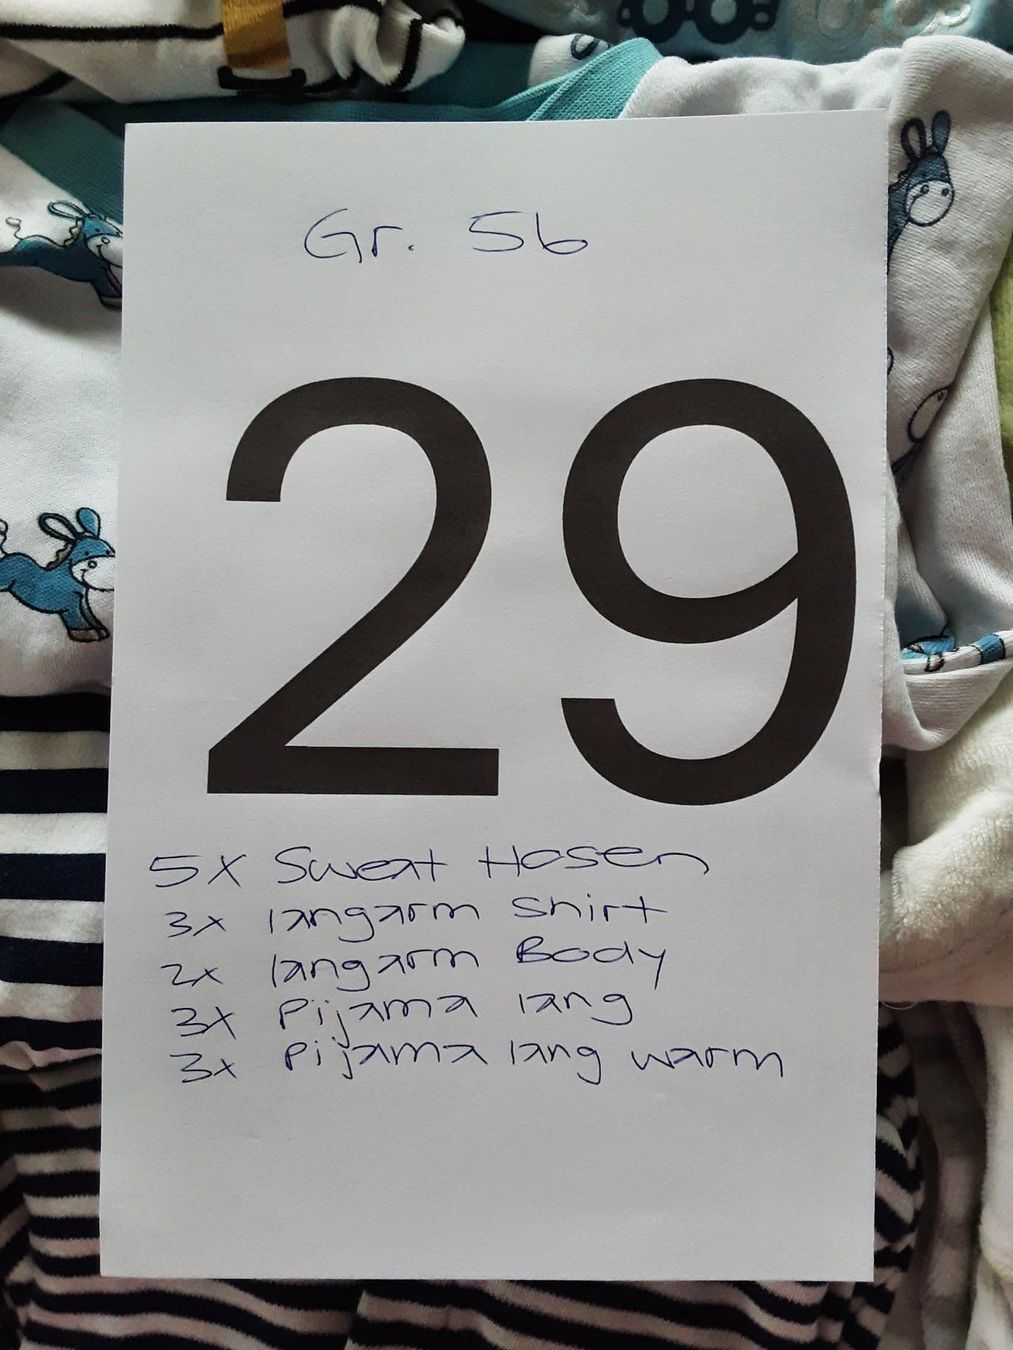 Gr. 56
29
5x Sweat Hosen
3x langarm shirt
2x langarm Body
3x Pijama lang
3x Pijama lang warm